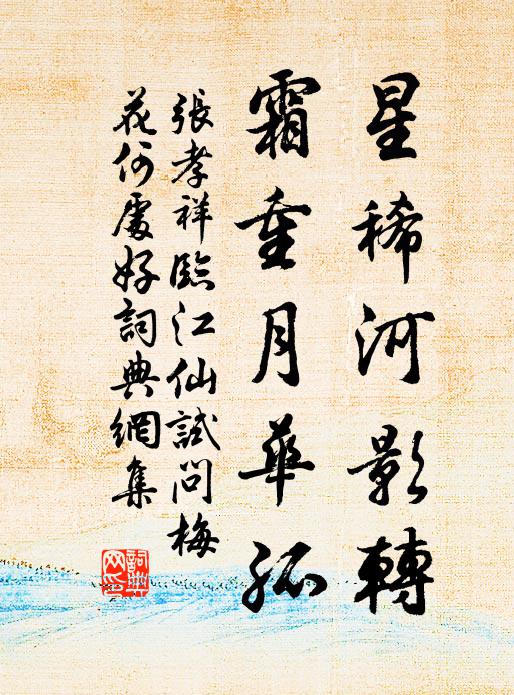 星稀河影轉
霜重月華孤
張孝祥臨江仙試問梅
花何處好詞典網集
詞典網印